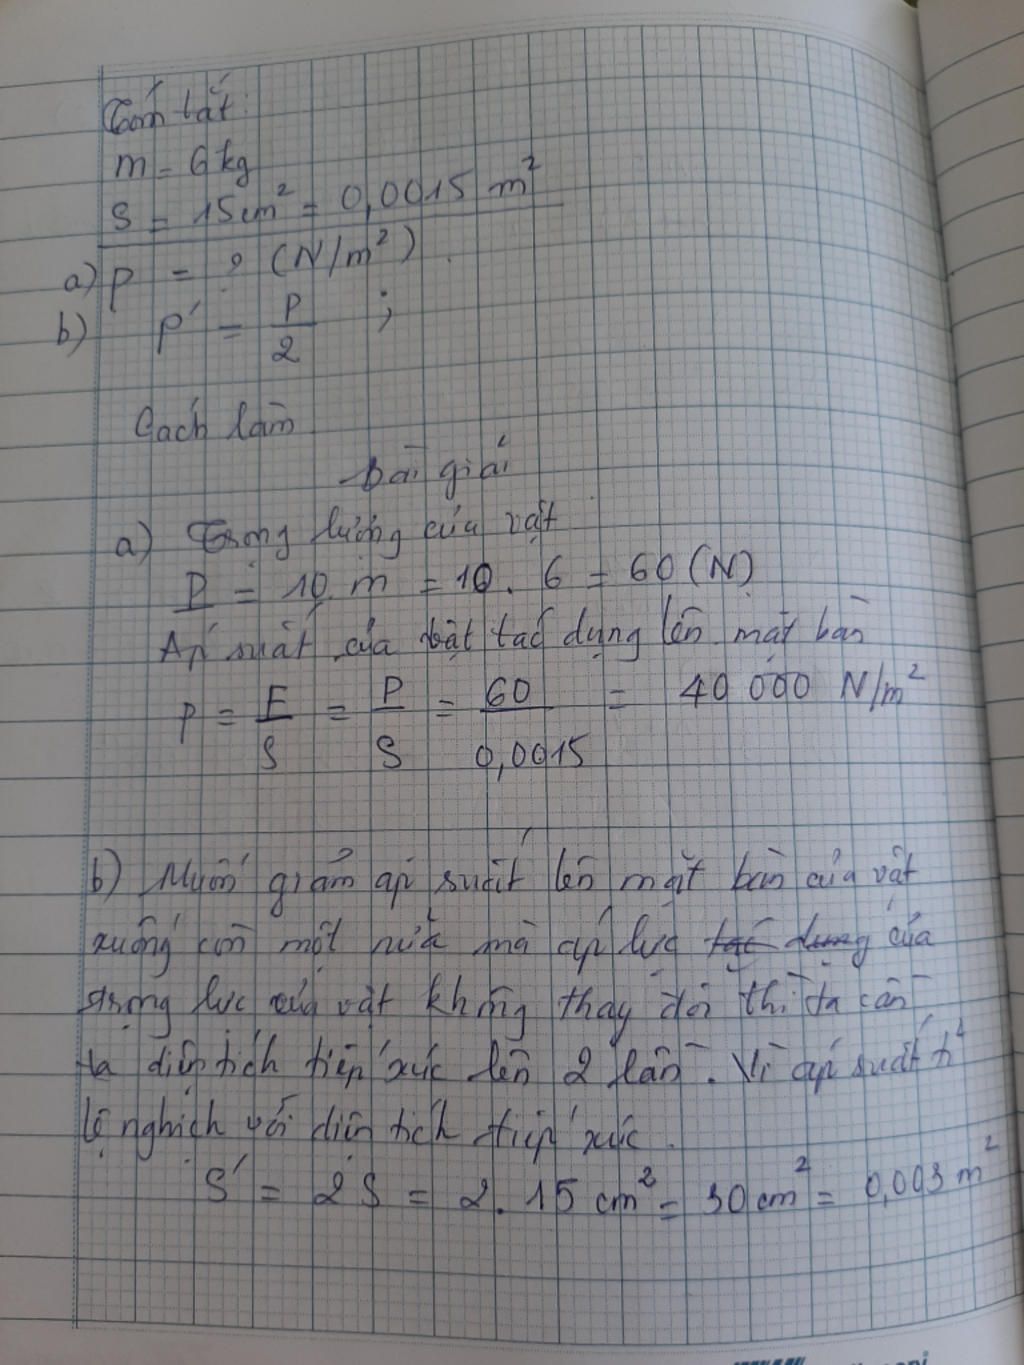 Tóm tắt:
m = 6 kg
S = 15 cm² = 0,0015 m²
a) p = ? (N/m²)
b) p' = p/2 ;
Cách làm
Bài giải
a) Trọng lượng của vật
P = 10.m = 10.6 = 60 (N)
Áp suất của vật tác dụng lên mặt bàn
p = F/S = P/S = 60/0,0015 = 40 000 N/m²
b) Muốn giảm áp suất lên mặt bàn của vật
xuống còn một nửa mà áp lực tác dụng của
trọng lực của vật không thay đổi thì ta cần
diện tích tiếp xúc lên 2 lần. Vì áp suất tỉ
lệ nghịch với diện tích tiếp xúc.
S' = 2S = 2.15 cm² = 30 cm² = 0,003 m²